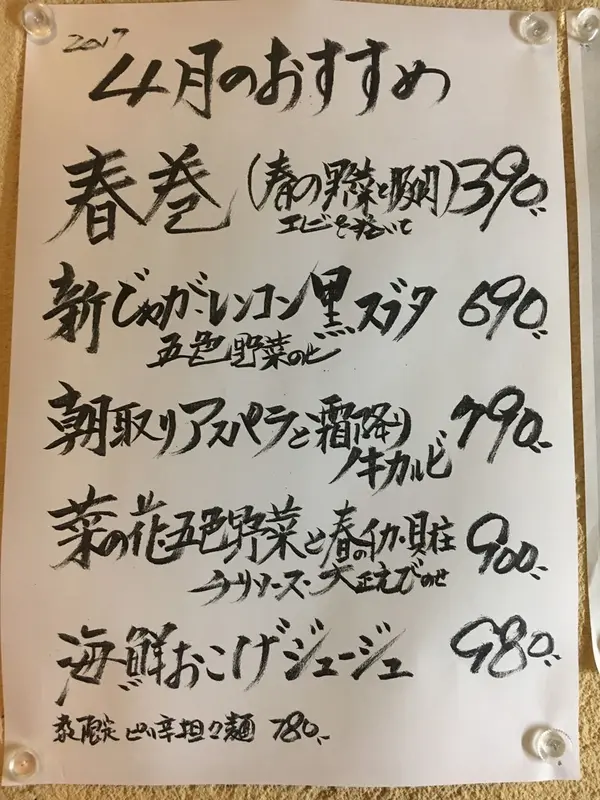 2017
4月のおすすめ
春巻(春の野菜と豚肉)390,-
エビを巻いて
新じゃが・レンコン黒ズブタ 690,-
五色野菜のせ
朝取りアスパラと霜降り 790,-
ノキカルビ
菜の花五色野菜と春のイカ・貝柱 900,-
チリソース・大正えびのせ
海鮮おこげジュージュ 980,-
限定 ピリ辛担々麺 780,-